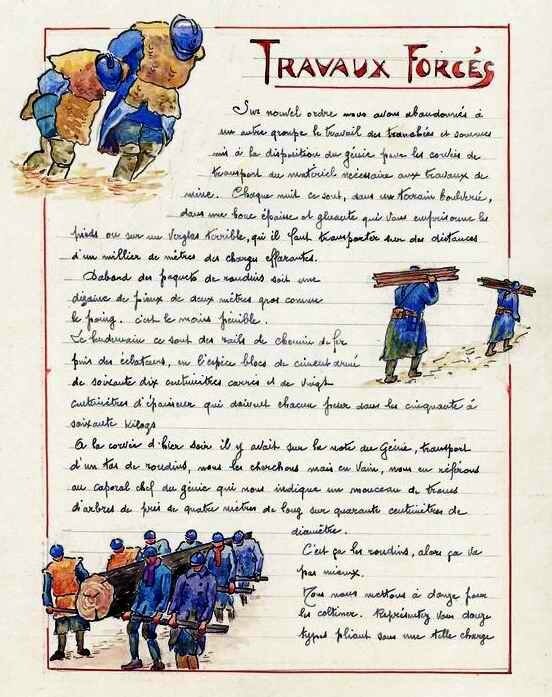 TRAVAUX FORCÉS
Sur nouvel ordre nous avons abandonnés à
un autre groupe le travail des tranchées et sommes
mis à la disposition du génie pour les corvées de
transport du matériel nécessaire aux travaux de
mine. Chaque nuit ce sont, dans un terrain boulversé,
dans une boue épaisse et gluante qui vous emprisonne les
pieds ou sur un verglas terrible, qu'il faut transporter sur des distances
d'un millier de mètres des charges effarantes.
Dabord des paquets de rondins soit une
dizaine de pieux de deux mètres gros comme
le poing. c'est le moins pénible.
Le lendemain ce sont des rails de chemin de fer
puis des éclateurs, en l'espèce blocs de ciment armé
de soixante dix centimètres carrés et de vingt
centimètres d'épaisseur qui doivent chacun peser dans les cinquante à
soixante kilogs
A la corvée d'hier soir il y avait sur la note du Génie, transport
d'un tas de rondins, nous les cherchons mais en vain, nous en référons
au caporal chef du génie qui nous indique un monceau de troncs
d'arbres de près de quatre mètres de long sur quarante centimètres de
diamètre.
C'est ça les rondins, alors ça va
pas mieux.
Nous nous mettons à douze pour
les coltiner. Représentez vous douze
types pliant sous une telle charge